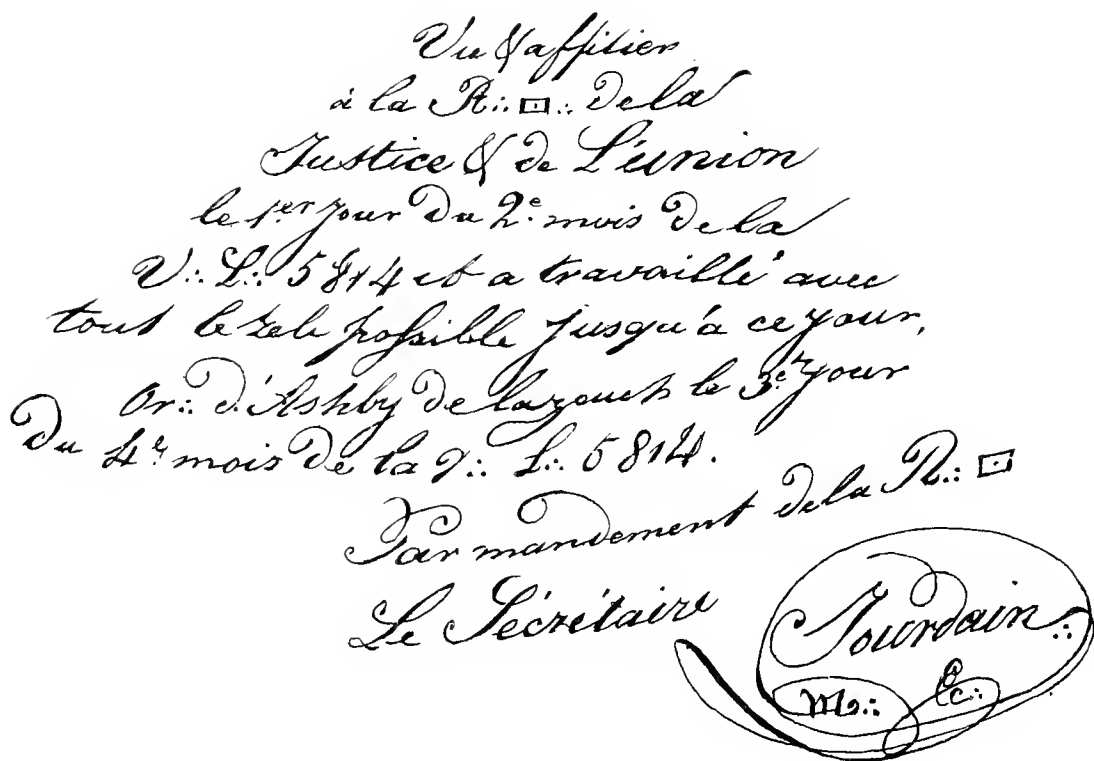 Vu & affilier
à la R∴ ⊡∴ de la
Justice & de L'union
le 1.er jour du 2.e mois de la
V∴ L∴ 5814 et a travaillé avec
tout le zele possible jusqu'a ce jour,
Or∴ d'Ashby de lazouch le 3.e jour
du 4.e mois de la V∴ L∴ 5814.
Par mandement de la R∴ ⊡
Le Sécrétaire
Jourdain∴
M∴